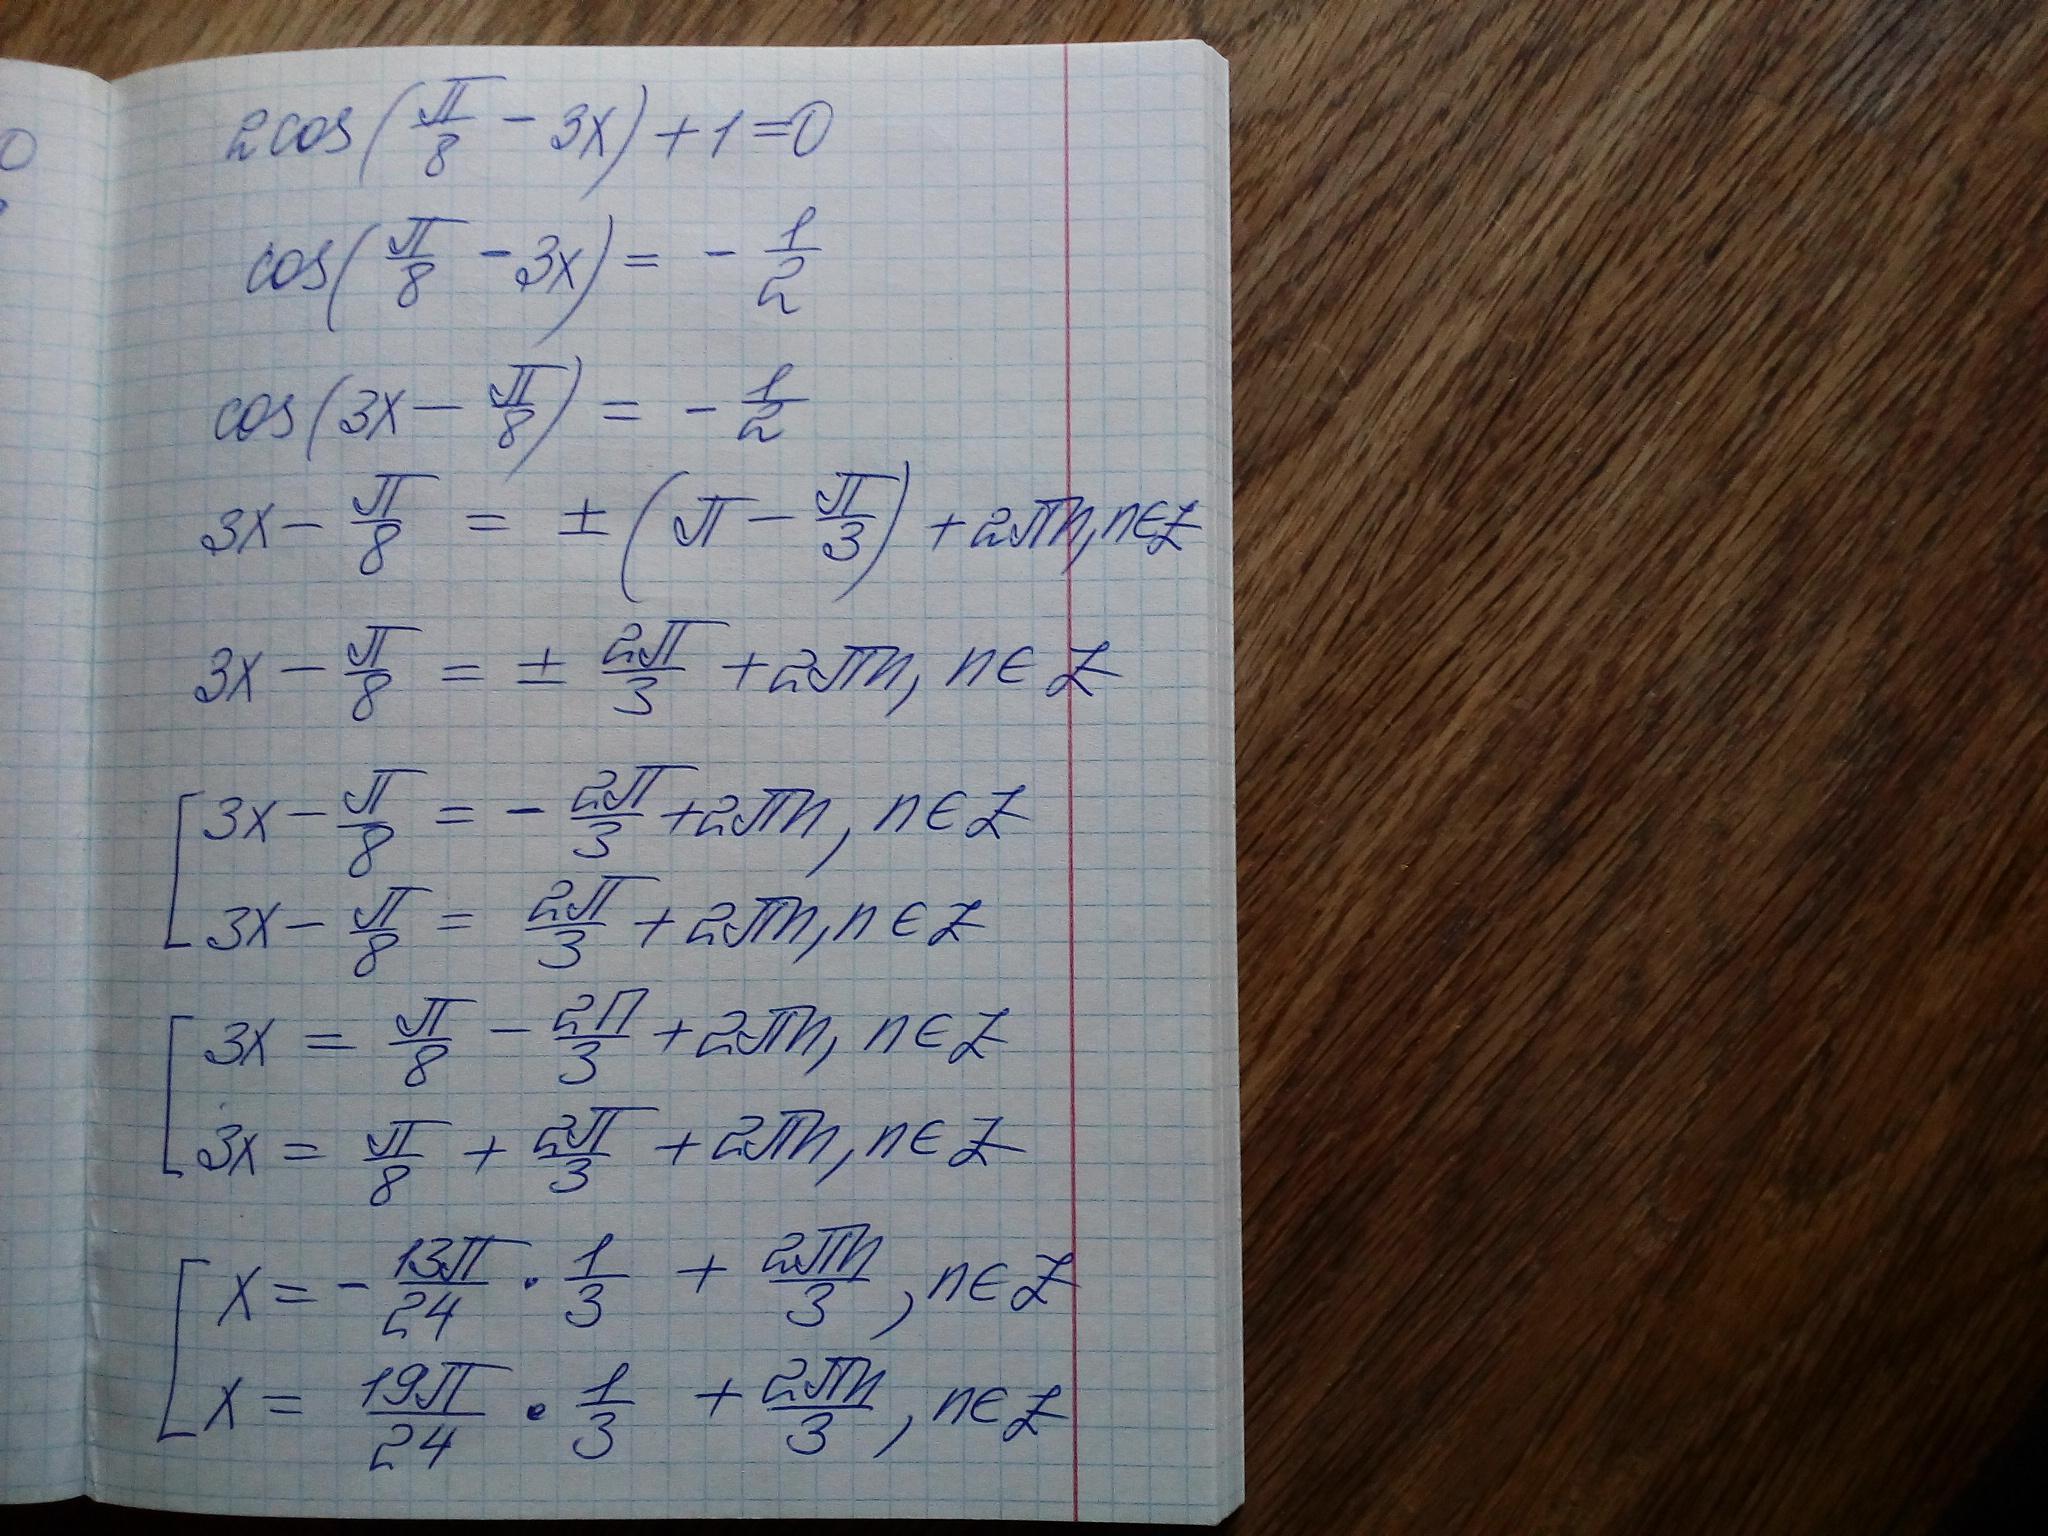 2cos(π/8 - 3x) + 1 = 0
cos(π/8 - 3x) = - 1/2
cos(3x - π/8) = - 1/2
3x - π/8 = ± (π - π/3) + 2πn, n∈Z
3x - π/8 = ± 2π/3 + 2πn, n∈Z
[ 3x - π/8 = - 2π/3 + 2πn, n∈Z
3x - π/8 = 2π/3 + 2πn, n∈Z
[ 3x = π/8 - 2π/3 + 2πn, n∈Z
3x = π/8 + 2π/3 + 2πn, n∈Z
[ x = - 13π/24 · 1/3 + 2πn/3, n∈Z
x = 19π/24 · 1/3 + 2πn/3, n∈Z